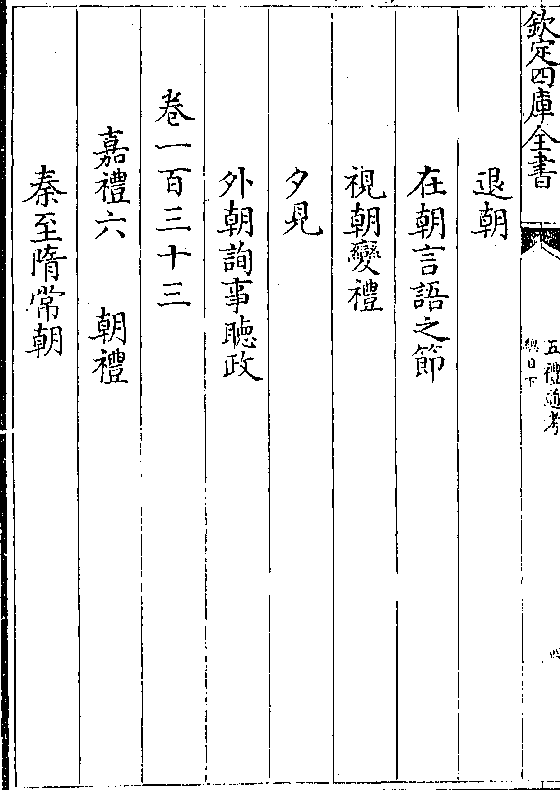 欽定四庫全書
五禮通考
總目下
四
退朝
在朝言語之節
視朝變禮
夕見
外朝詢事聽政
卷一百三十三
嘉禮六 朝禮
秦至隋常朝